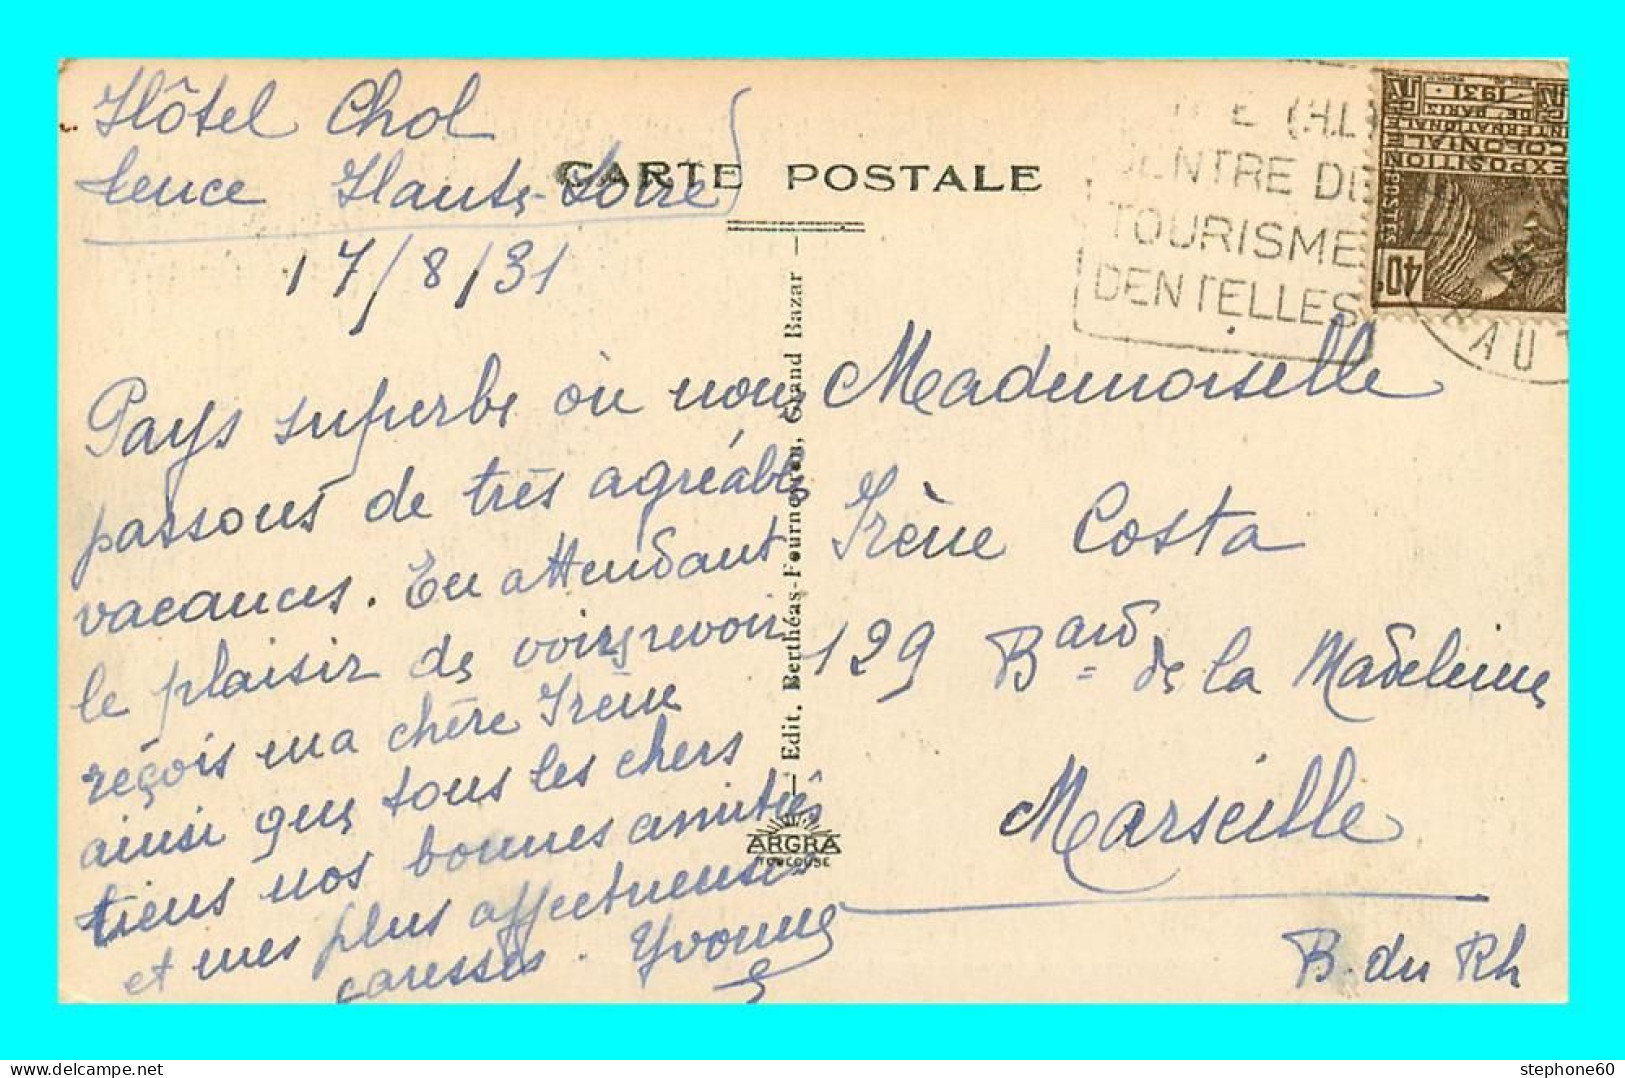 Hôtel Chol
tence Haute-Loire
17/8/31
CARTE POSTALE
(H.L)
CENTRE DE
TOURISME
DENTELLES
EXPOSITION
COLONIALE
INTERNATIONALE
DE PARIS
1931
POSTES
40c
Pays superbe où nous
passons de très agréables
vacances. En attendant
le plaisir de voirs revoir
reçois ma chère Irène
ainsi que tous les chers
tiens nos bonnes amitiés
et mes plus affectueuses
caresses. Yvonne
Edit. Berthéas-Fourneyron, Grand Bazar
ARGRA
TOULOUSE
Mademoiselle
Irène Costa
129 Bard de la Madeleine
Marseille
B. du Rh
stephone60